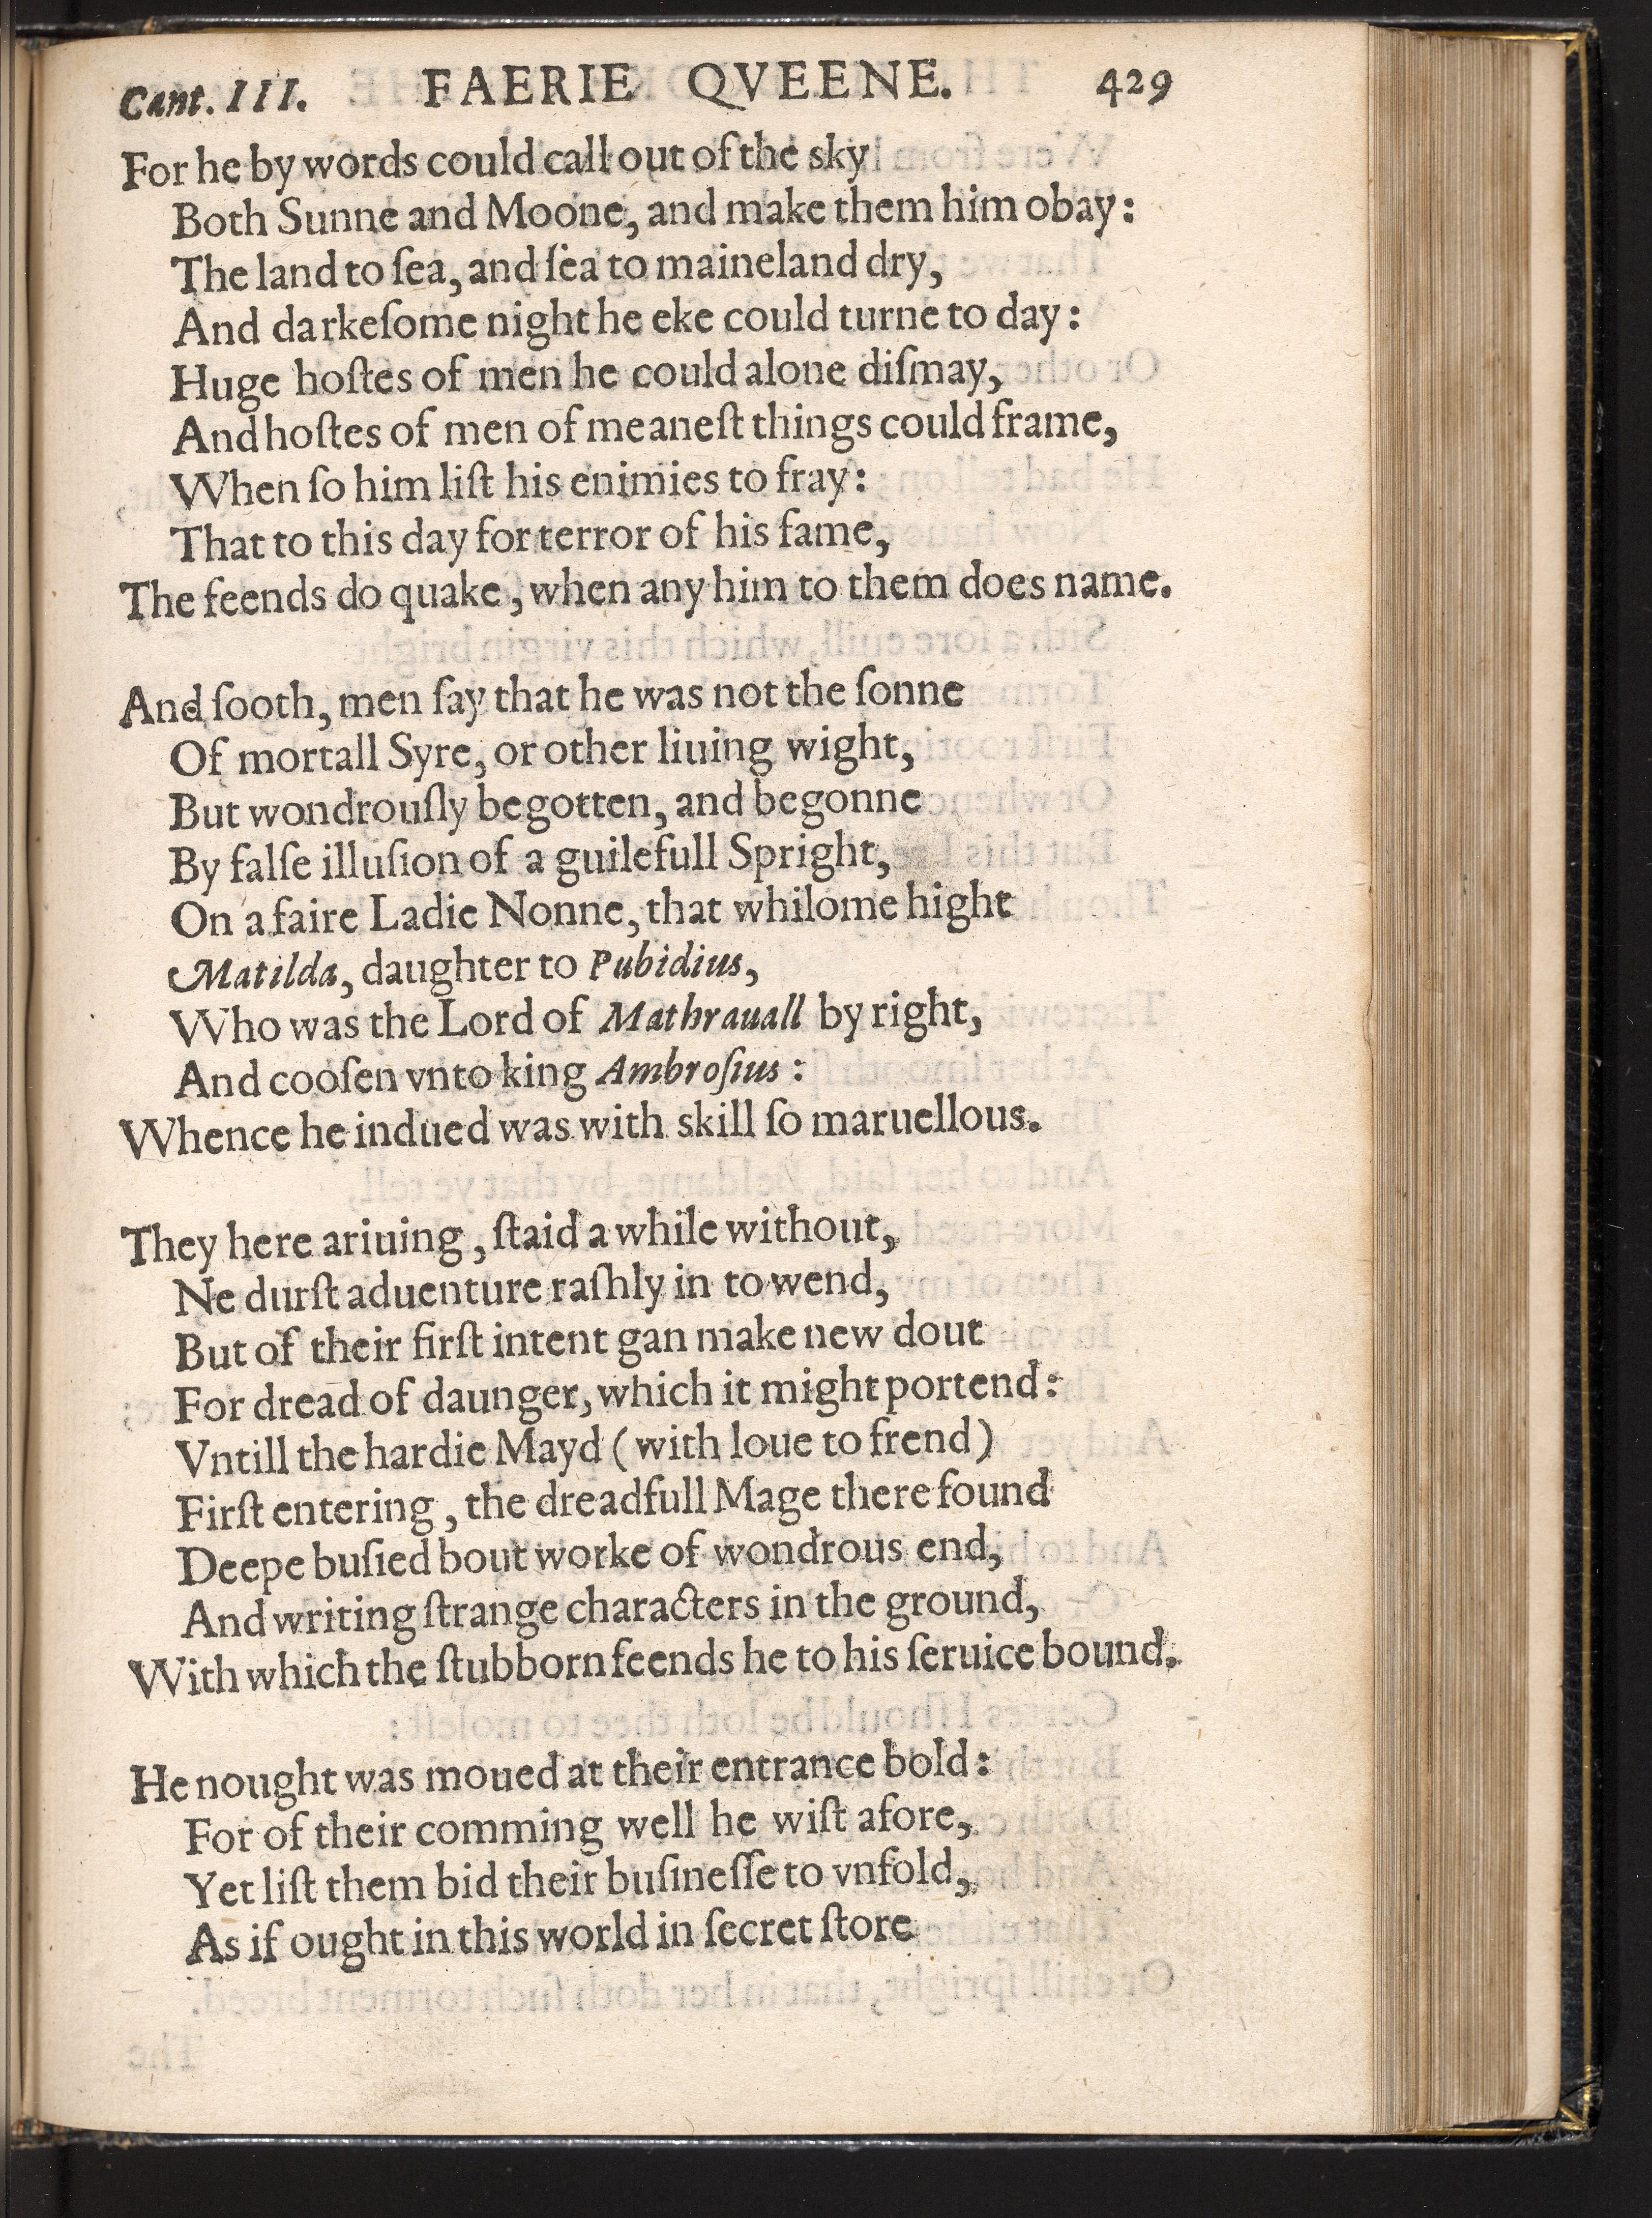 Cant. III. FAERIE QVEENE. 429
For he by words could call out of the sky
Both Sunne and Moone, and make them him obay:
The land to ſea, and ſea to maineland dry,
And darkeſome night he eke could turne to day:
Huge hoſtes of men he could alone diſmay,
And hoſtes of men of meaneſt things could frame,
When ſo him liſt his enimies to fray:
That to this day for terror of his fame,
The feends do quake, when any him to them does name.
And ſooth, men ſay that he was not the ſonne
Of mortall Syre, or other liuing wight,
But wondrouſly begotten, and begonne
By falſe illuſion of a guilefull Spright,
On a faire Ladie Nonne, that whilome hight
Matilda, daughter to Pubidius,
Who was the Lord of Mathrauall by right,
And cooſen vnto king Ambroſius:
Whence he indued was with skill ſo maruellous.
They here ariuing, ſtaid a while without,
Ne durſt aduenture raſhly in to wend,
But of their firſt intent gan make new dout
For dread of daunger, which it might portend:
Vntill the hardie Mayd (with loue to frend)
Firſt entering, the dreadfull Mage there found
Deepe buſied bout worke of wondrous end,
And writing ſtrange characters in the ground,
With which the ſtubborn feends he to his ſeruice bound.
He nought was moued at their entrance bold:
For of their comming well he wiſt afore,
Yet liſt them bid their buſineſſe to vnfold,
As if ought in this world in ſecret ſtore